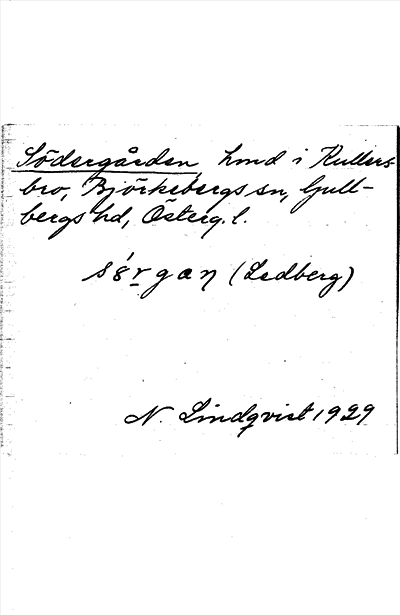 Södergården, hmd i Kullers-
bro, Björkebergs sn, Gull-
bergs hd, Österg. l.
(Ledberg)
N. Lindqvist 1929